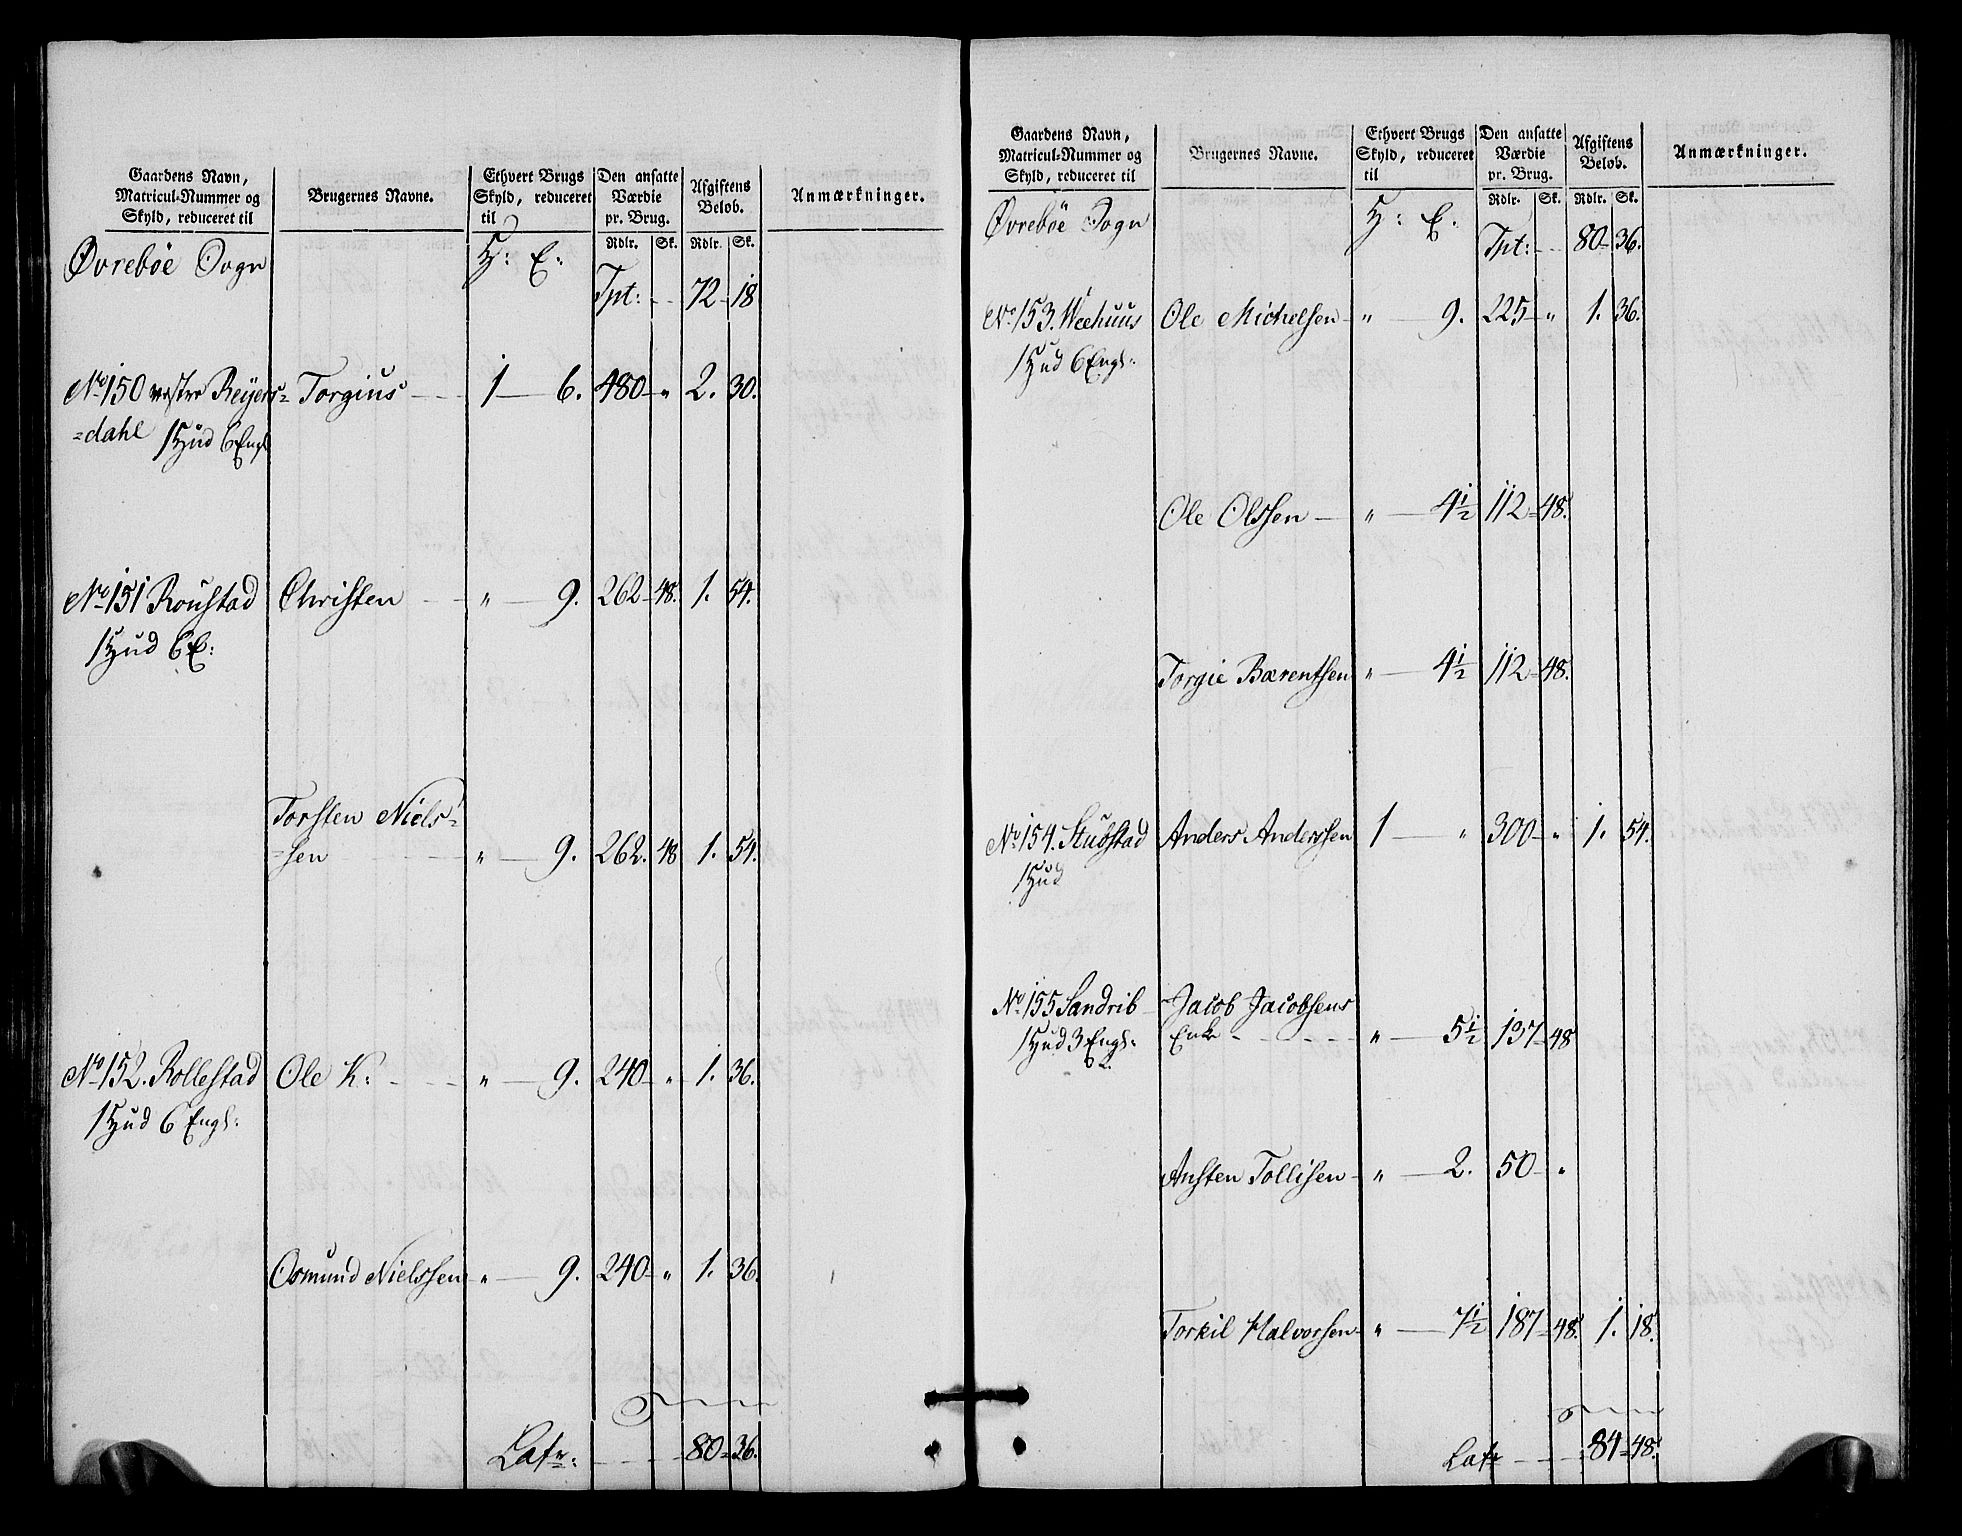 Gaardens Navn,
Matricul-Nummer og
Skyld, reduceret til
Brugernes Navne.
Ethvert Brugs
Skyld, reduceret
til
Den ansatte
Værdie
pr. Brug.
Afgiftens
Beløb.
Anmærkninger.
Rdlr. Sk. Rdlr. Sk.
Øvrebøe Sogn H: E:
Tpt: - - 72 - 18
No 150 vestre Reijers= Torgius - - - 1 - 6. 480 - " 2. 30.
=dahl 1 Hud 6 Engl
No 151 Roustad Christen - - " - 9. 262 - 48. 1. 54.
1 Hud 6 E:
Torsten Niels=
=sen - - - " - 9. 262. 48 1. 54.
No 152. Rollestad Ole K: - - - " - 9. 240 - " 1. 36.
1 Hud 6 Engl:
Osmund Nielssen " - 9. 240 - " 1. 36.
Latr: - - - 80 = 36.
Gaardens Navn,
Matricul-Nummer og
Skyld, reduceret til
Brugernes Navne.
Ethvert Brugs
Skyld, reduceret
til
Den ansatte
Værdie
pr. Brug.
Afgiftens
Beløb.
Anmærkninger.
Rdlr. Sk. Rdlr. Sk.
Øvrebøe Sogn H: E:
Tpt: - - 80 - 36.
No 153. Weehuus Ole Michelsen - " - 9. 225 - " 1. 36.
1 Hud 6 Engl:
Ole Olssen - " - 4½ 112 = 48.
Torgie Bærentsen " - 4½ 112 - 48.
No 154. Stubstad Anders Anderssen 1 - " 300 - " 1. 54.
1 Hud
No 155 Sandrib Jacob Jacobsens
1 Hud 3 Engl: Enke - - - - " - 5½ 137 - 48
Ansten Tollisen - " - 2. 50 - "
Torkil Halvorsen - " - 7½ 187 = 48. 1. 18.
Latr - - - 84 = 48.